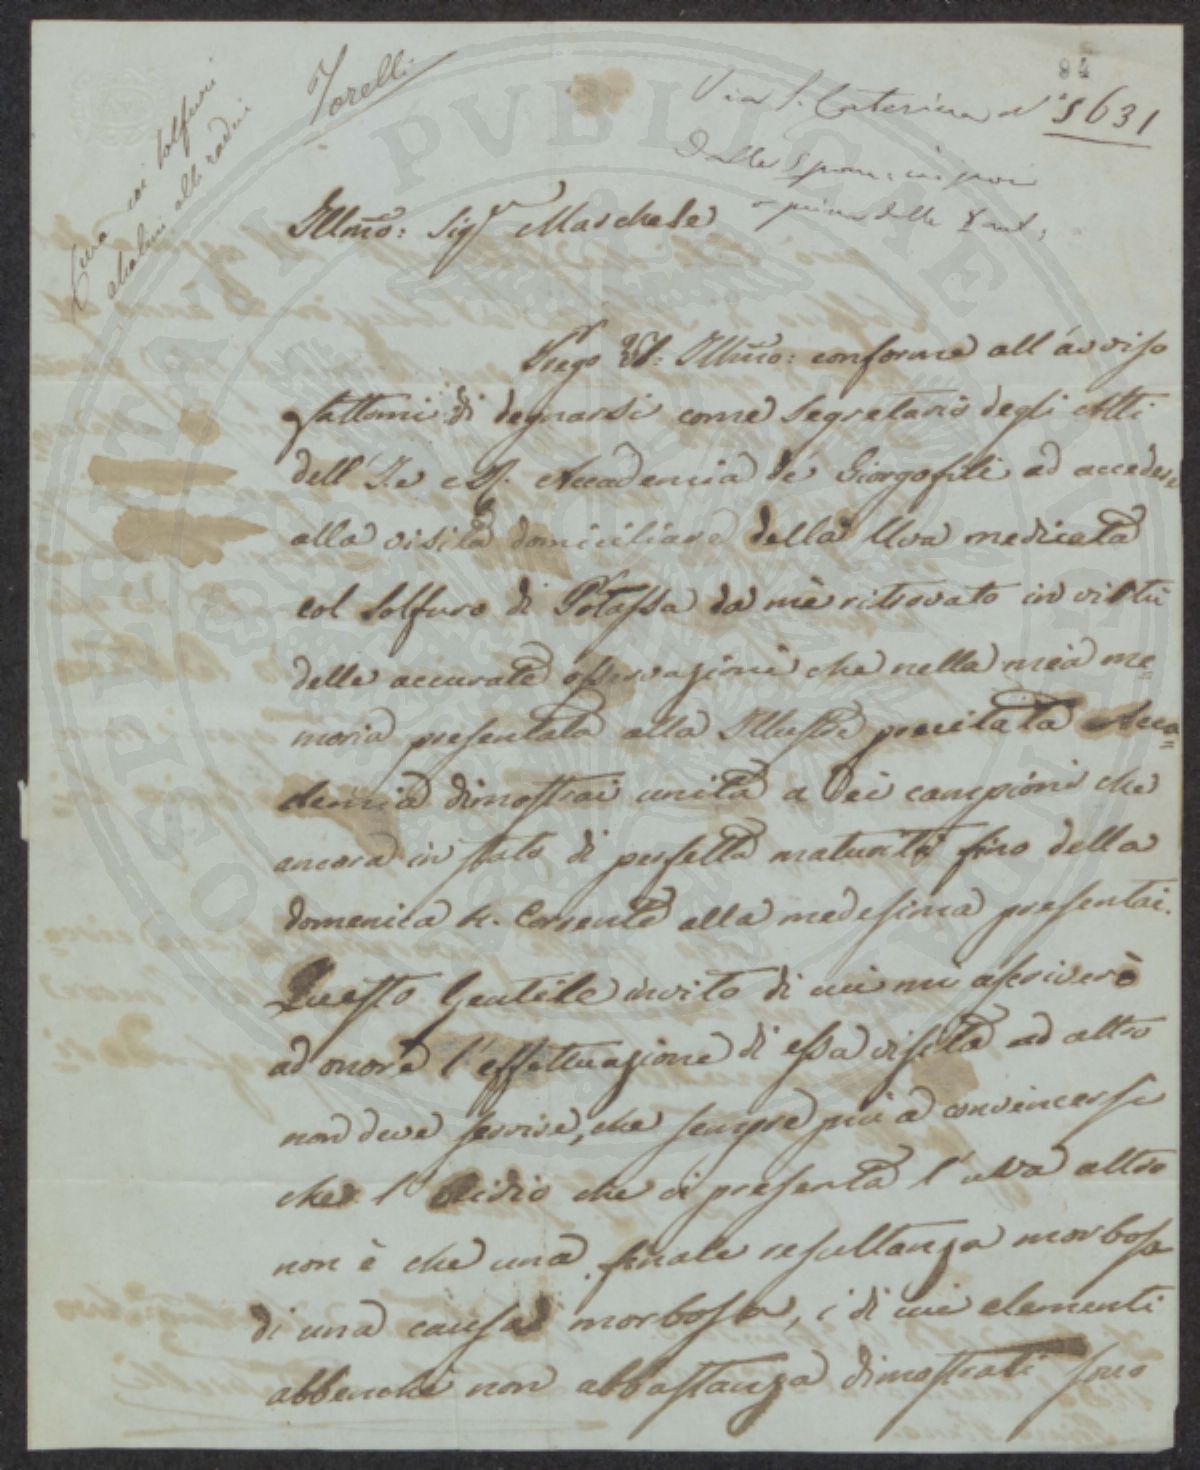 84
Via S. Caterina N° 5631
Dalle 8 pom: in poi
o prima delle 8 ant:
Torelli
Cura coi solfuri
alcalini alle radici
Illmo: Sigr Marchese
Prego VS: Illmo: conforme all'avviso
fattomi di degnarsi come Segretario degli Atti
dell'I. e R. Accademia de' Giorgofili ad accedere
alla visita domiciliare della Uva medicata
col solfuro di Potassa da mè ritrovato in virtù
delle accurate osservazioni che nella mia me=
moria presentata alla Illustre precitata Acca=
demia dimostrai unita a sei campioni che
ancora in stato di perfetta maturità fino della
domenica 4. Corrente alla medesima presentai.
Questo Gentile invito di cui mi ascriverò
ad onore l'effettuazione di essa visita ad altro
non deve servire, che sempre più a convincersi
che l'Oidio che ci presenta l'uva altro
non è che una finale resultanza morbosa
di una causa morbosa, i di cui elementi
abbenchè non abbastanza dimostrati sono